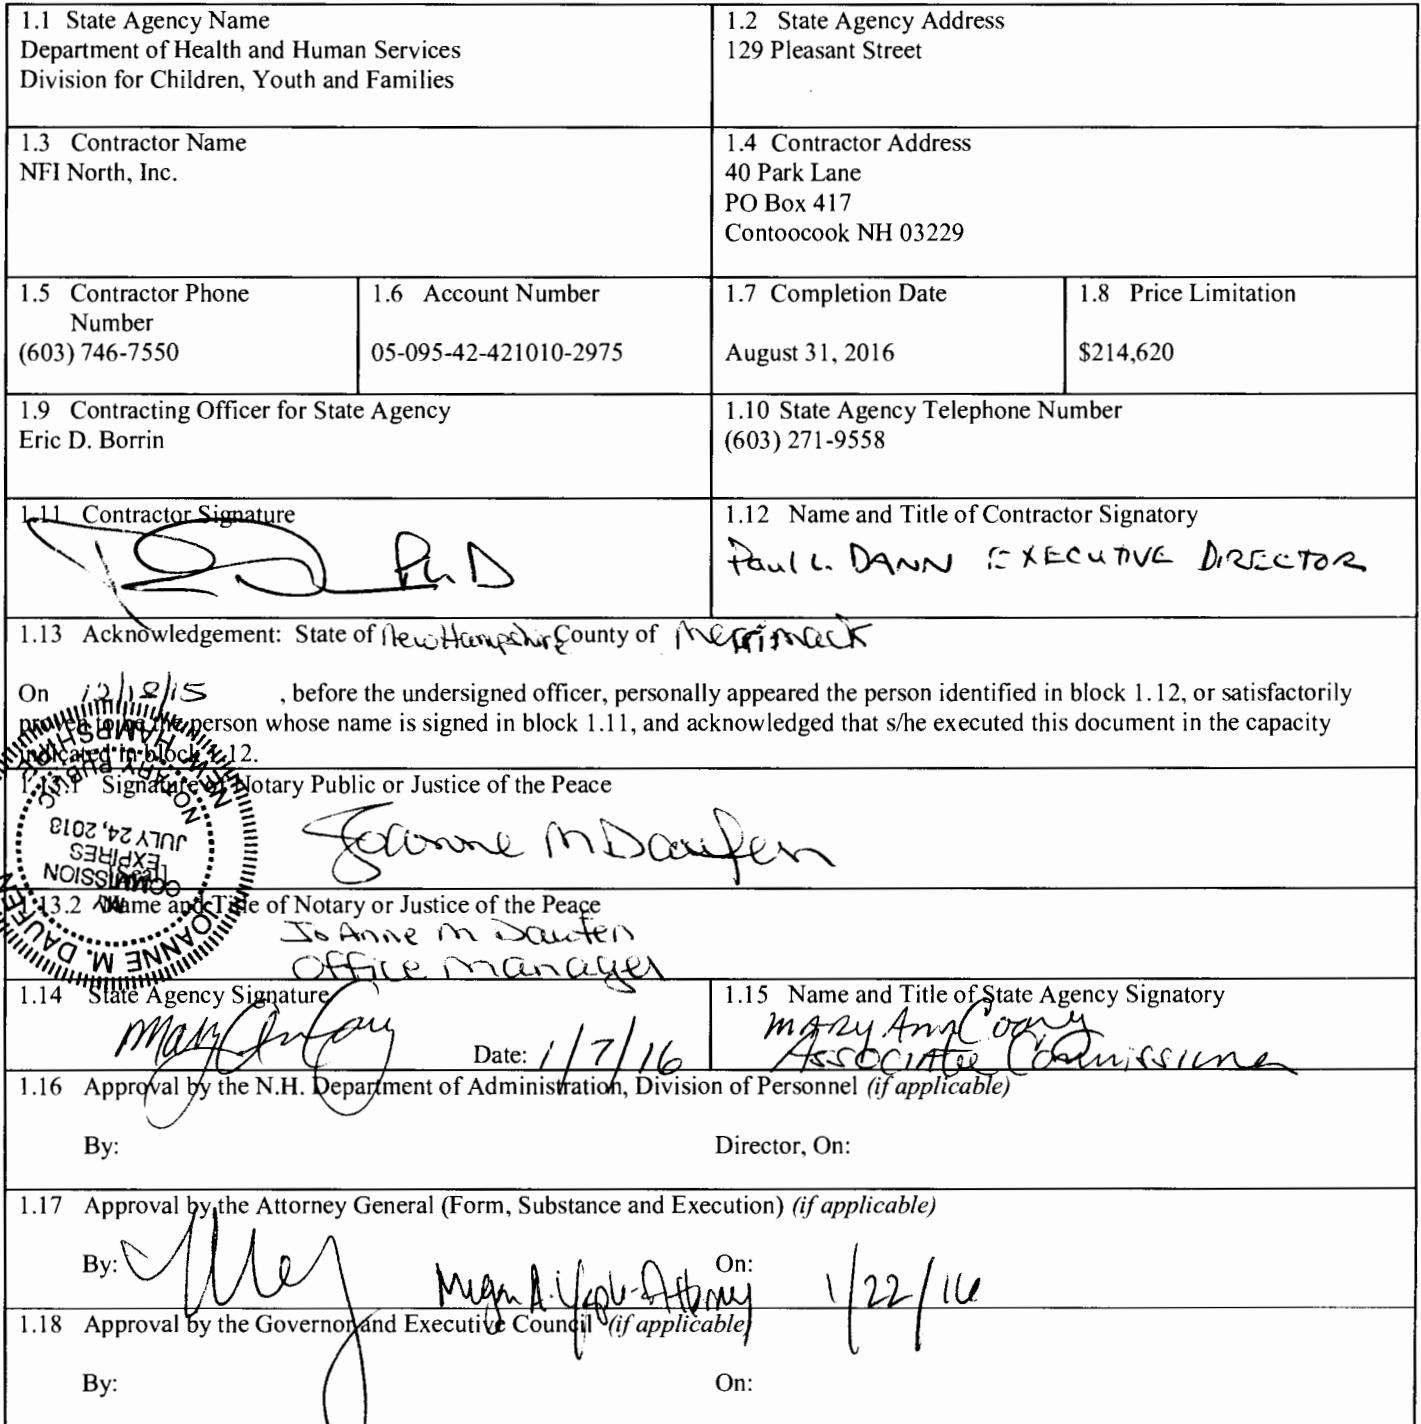 1.1 State Agency Name
Department of Health and Human Services
Division for Children, Youth and Families
1.2 State Agency Address
129 Pleasant Street
1.3 Contractor Name
NFI North, Inc.
1.4 Contractor Address
40 Park Lane
PO Box 417
Contoocook NH 03229
1.5 Contractor Phone
Number
(603) 746-7550
1.6 Account Number
05-095-42-421010-2975
1.7 Completion Date
August 31, 2016
1.8 Price Limitation
$214,620
1.9 Contracting Officer for State Agency
Eric D. Borrin
1.10 State Agency Telephone Number
(603) 271-9558
1.11 Contractor Signature
Ph.D
1.12 Name and Title of Contractor Signatory
Paul L. DANN EXECUTIVE DIRECTOR
1.13 Acknowledgement: State of New Hampshire County of Merrimack
On 12/18/15 , before the undersigned officer, personally appeared the person identified in block 1.12, or satisfactorily
proven to be the person whose name is signed in block 1.11, and acknowledged that s/he executed this document in the capacity
indicated in block 1.12.
1.13.1 Signature of Notary Public or Justice of the Peace
Joanne M Daufen
[Seal]
JOANNE M. DAUFEN
MY
COMMISSION
EXPIRES
JULY 24, 2018
NOTARY PUBLIC
NEW HAMPSHIRE
1.13.2 Name and Title of Notary or Justice of the Peace
JoAnne M Daufen
Office Manager
1.14 State Agency Signature
Date: 1/7/16
1.15 Name and Title of State Agency Signatory
Mary Ann Cooney
Associate Commissioner
1.16 Approval by the N.H. Department of Administration, Division of Personnel (if applicable)
By:
Director, On:
1.17 Approval by the Attorney General (Form, Substance and Execution) (if applicable)
By:
Megan A. Yaple-Attorney
On: 1/22/16
1.18 Approval by the Governor and Executive Council (if applicable)
By:
On: